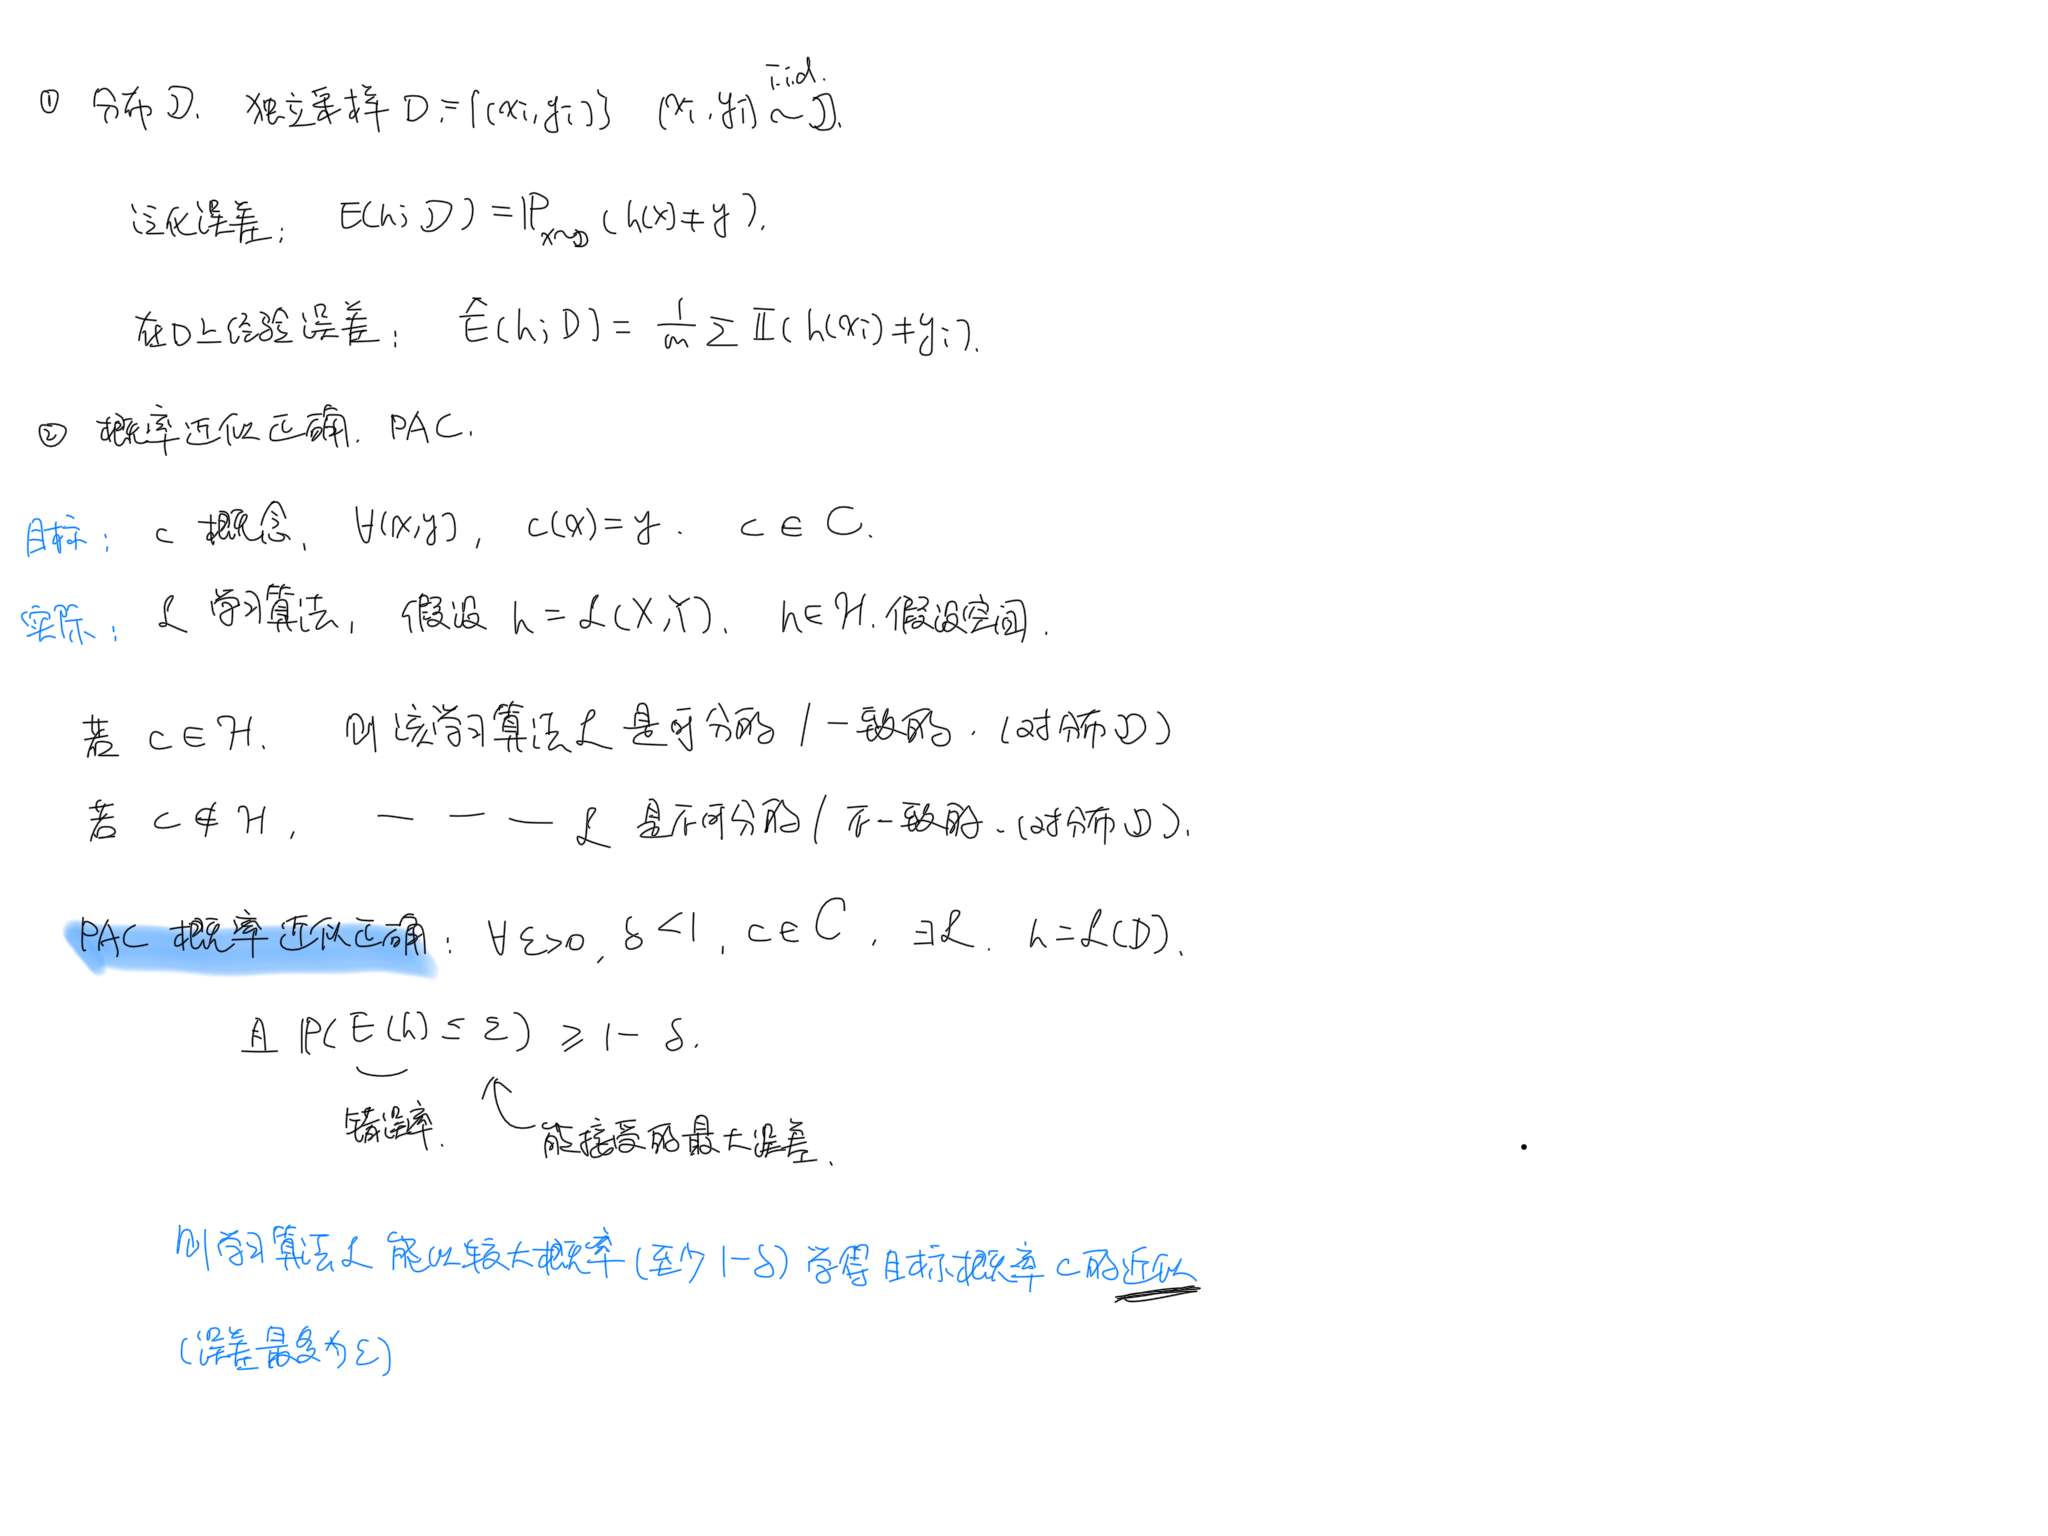 ① 分布 𝒟. 独立采样 D = {(xᵢ, yᵢ)} (xᵢ, yᵢ) i.i.d. ~ 𝒟.
泛化误差: E(h; 𝒟) = ℙ_{x~𝒟}(h(x) ≠ y).
在D上经验误差: Ê(h; D) = 1/m Σ 𝕀(h(xᵢ) ≠ yᵢ).
② 概率近似正确. PAC.
目标: c 概念, ∀(x,y), c(x) = y. c ∈ C.
实际: ℒ 学习算法, 假设 h = ℒ(X,Y). h ∈ ℋ. 假设空间.
若 c ∈ ℋ. 则该学习算法 ℒ 是可分的 / 一致的. (对分布 𝒟)
若 c ∉ ℋ, — — — ℒ 是不可分的 / 不一致的. (对分布 𝒟).
PAC 概率近似正确: ∀ ε>0, δ<1, c ∈ C, ∃ℒ. h = ℒ(D).
且 ℙ(E(h) ≤ ε) ≥ 1 - δ.
错误率.
能接受的最大误差.
则学习算法 ℒ 能以较大概率 (至少 1-δ) 学得目标概率 c 的近似
(误差最多为 ε)